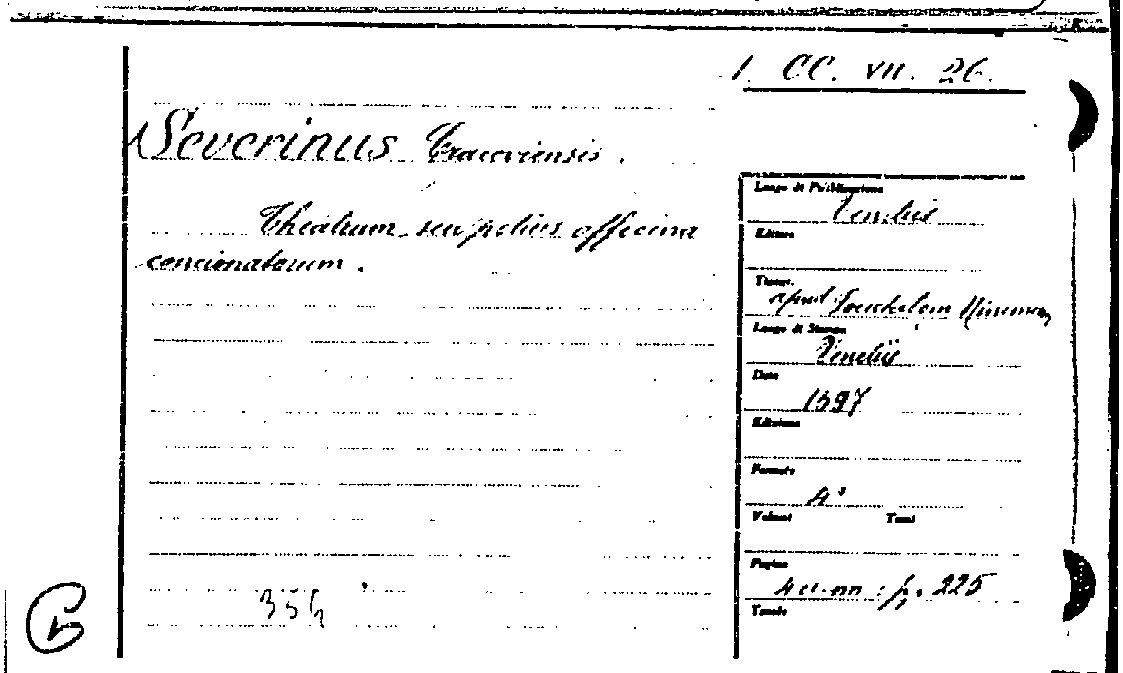 1. CC. VII. 26.
Severinus Cracoviensis.
Theatrum seu potius officina
concionatorum.
Luogo di Pubblicazione
Venetiis
Editore
Tipogr.
apud
Luogo di Stampa
Venetiis
Data
1597
Edizione
Formato
4°
Volumi Tomi
Pagine
4 cc. nn : p. 225
Tavole
356